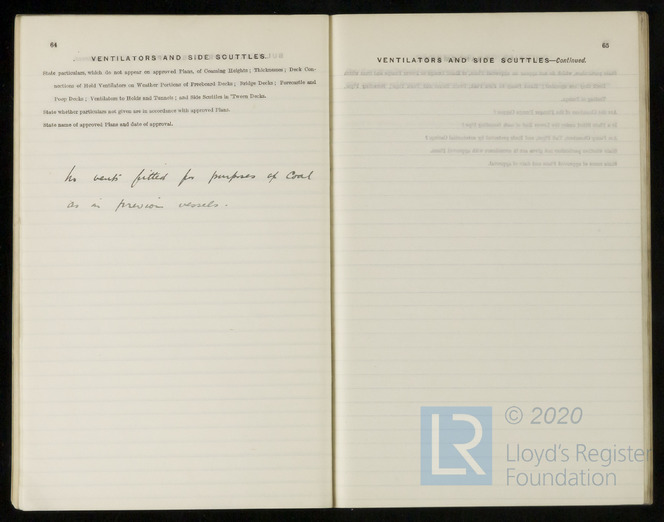 64
VENTILATORS AND SIDE SCUTTLES.
State particulars, which do not appear on approved Plans, of Coaming Heights; Thicknesses; Deck Con-
nections of Hold Ventilators on Weather Portions of Freeboard Decks; Bridge Decks; Forecastle and
Poop Decks; Ventilators to Holds and Tunnels; and Side Scuttles in 'Tween Decks.
State whether particulars not given are in accordance with approved Plans.
State name of approved Plans and date of approval.
No vents fitted for purposes of Coal
as in previous vessels.
65
VENTILATORS AND SIDE SCUTTLES—Continued.
LR
© 2020
Lloyd's Register
Foundation